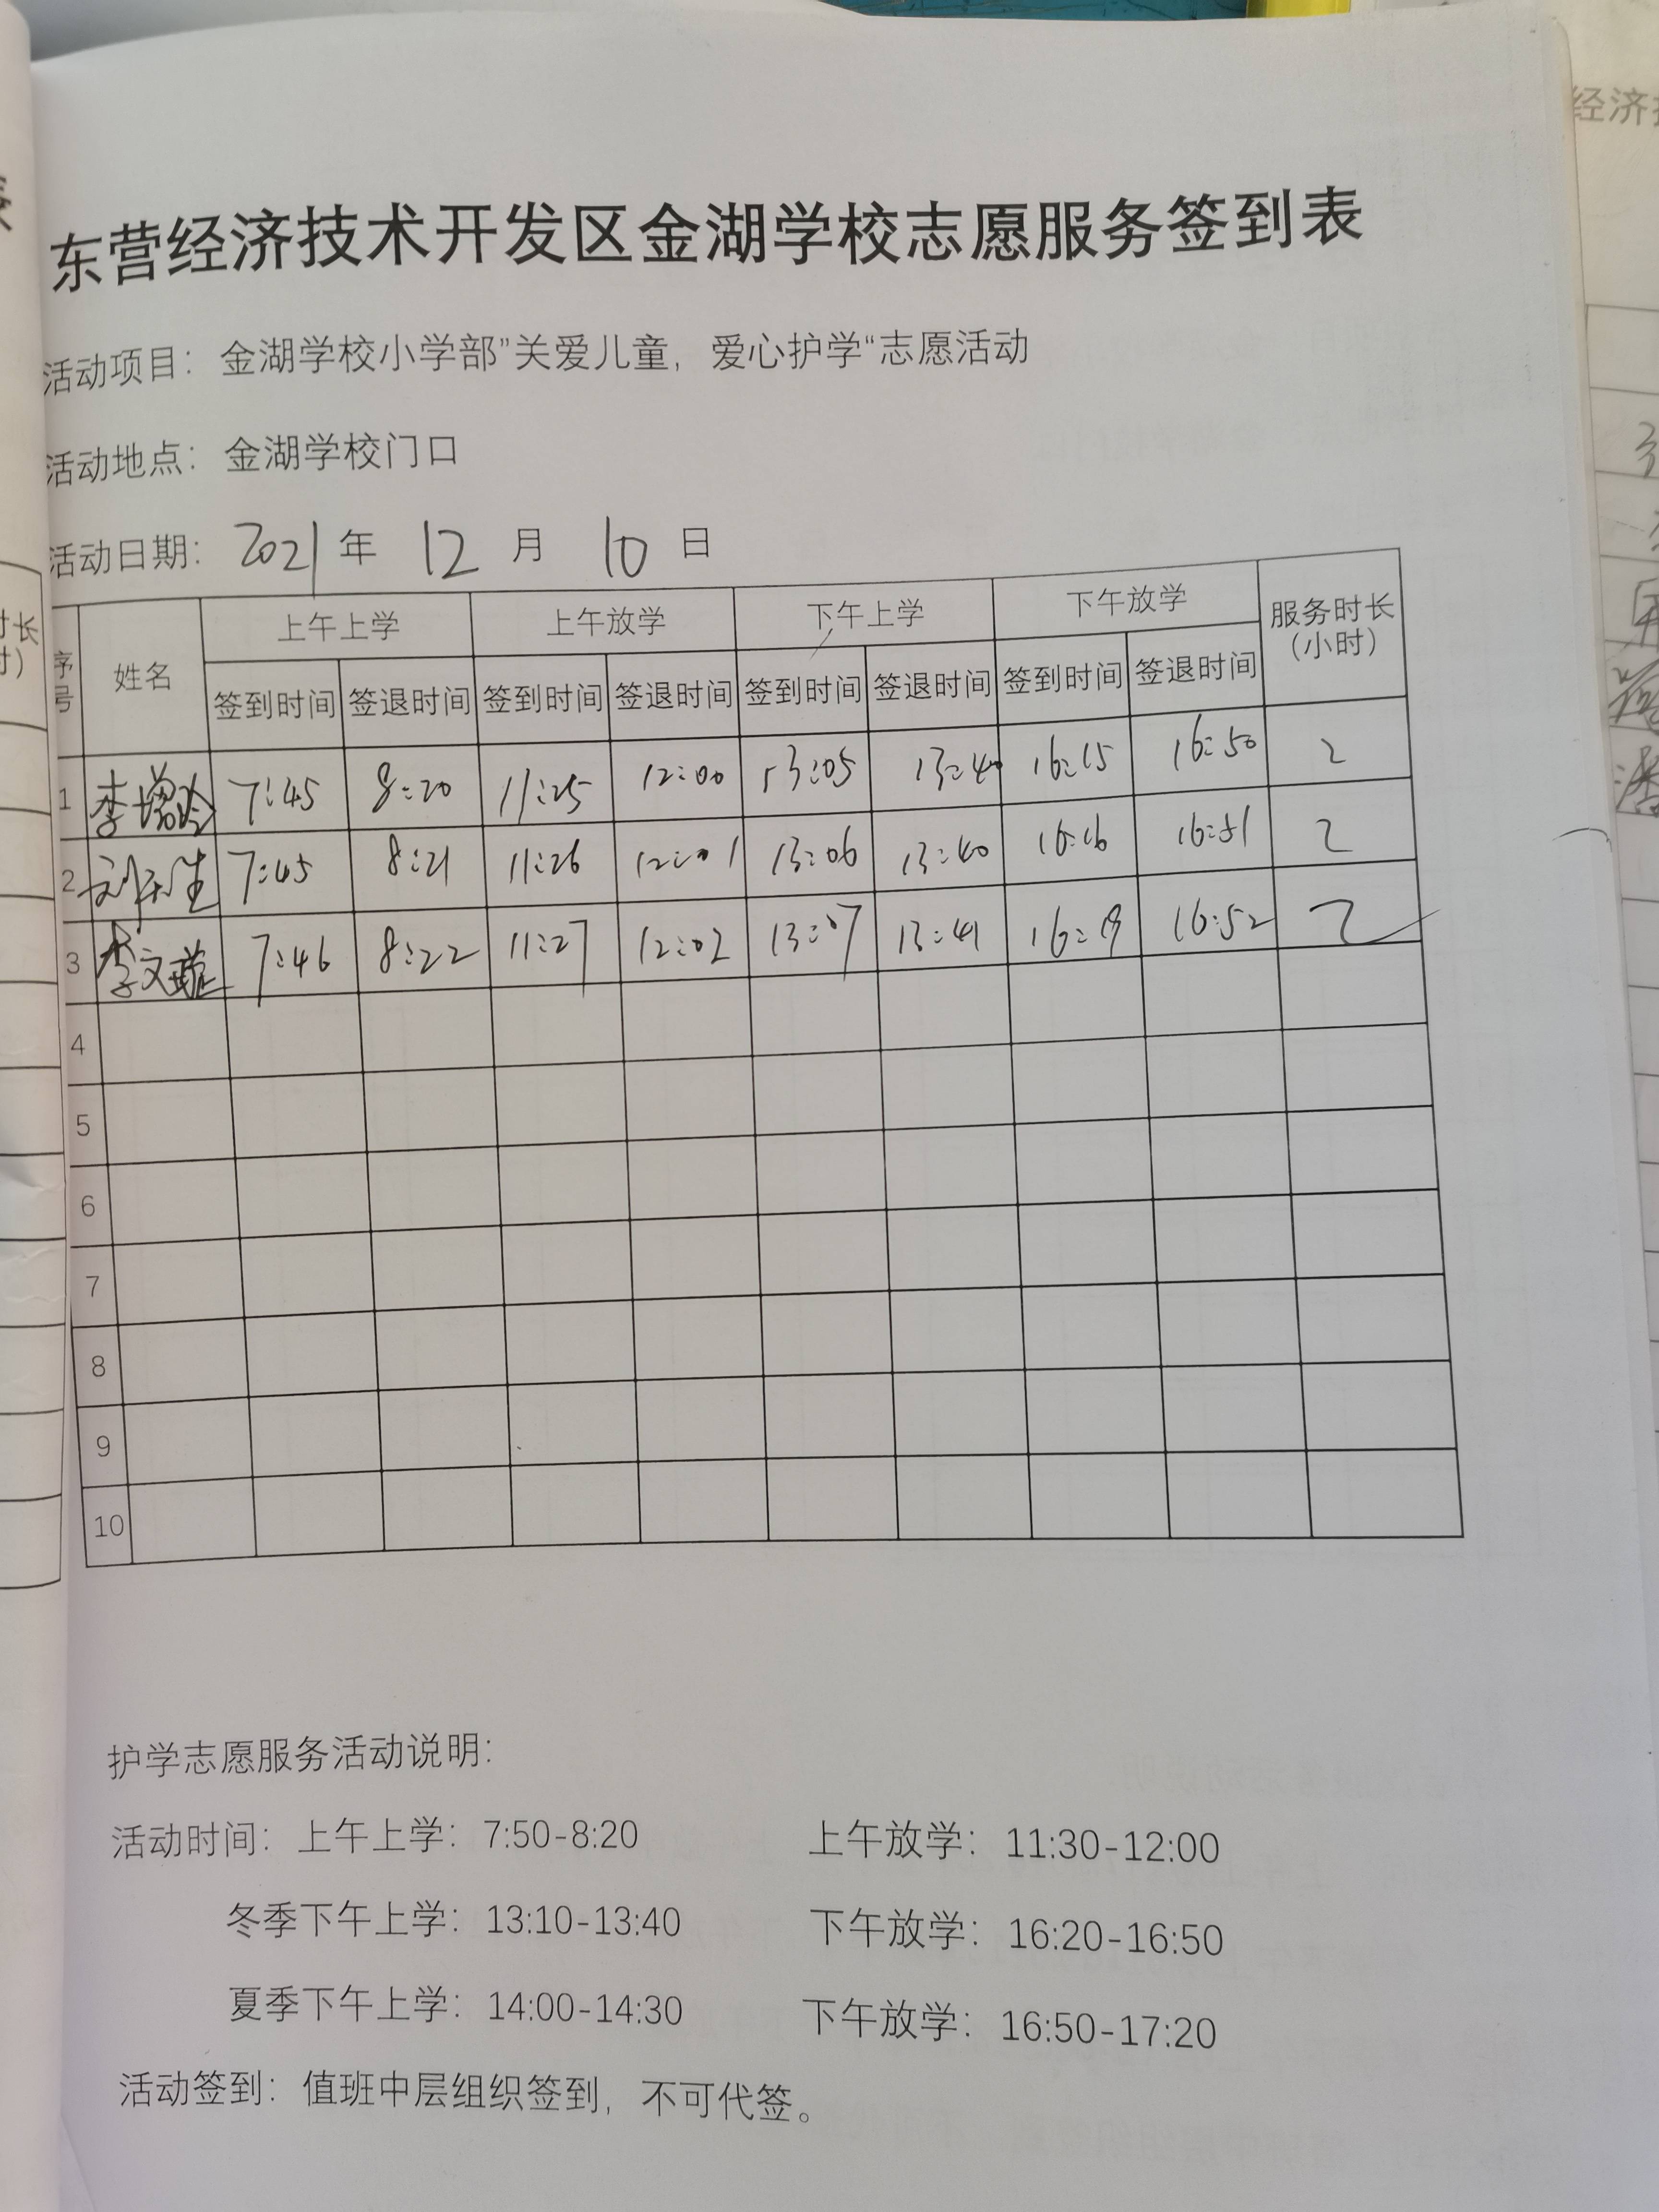 东营经济技术开发区金湖学校志愿服务签到表
活动项目：金湖学校小学部”关爱儿童，爱心护学“志愿活动
活动地点：金湖学校门口
活动日期：2021年 12 月 10 日
序号 姓名 上午上学 上午放学 下午上学 下午放学 服务时长（小时）
签到时间 签退时间 签到时间 签退时间 签到时间 签退时间 签到时间 签退时间
1 李增 7:45 8:20 11:25 12:00 13:05 13:40 16:15 16:50 2
2 刘 生 7:45 8:21 11:26 12:01 13:06 13:40 16:16 16:51 2
3 李文 7:46 8:22 11:27 12:02 13:07 13:41 16:52 2
4
5
6
7
8
9
10
护学志愿服务活动说明：
活动时间：上午上学：7:50-8:20 上午放学：11:30-12:00
冬季下午上学：13:10-13:40 下午放学：16:20-16:50
夏季下午上学：14:00-14:30 下午放学：16:50-17:20
活动签到：值班中层组织签到，不可代签。
经济